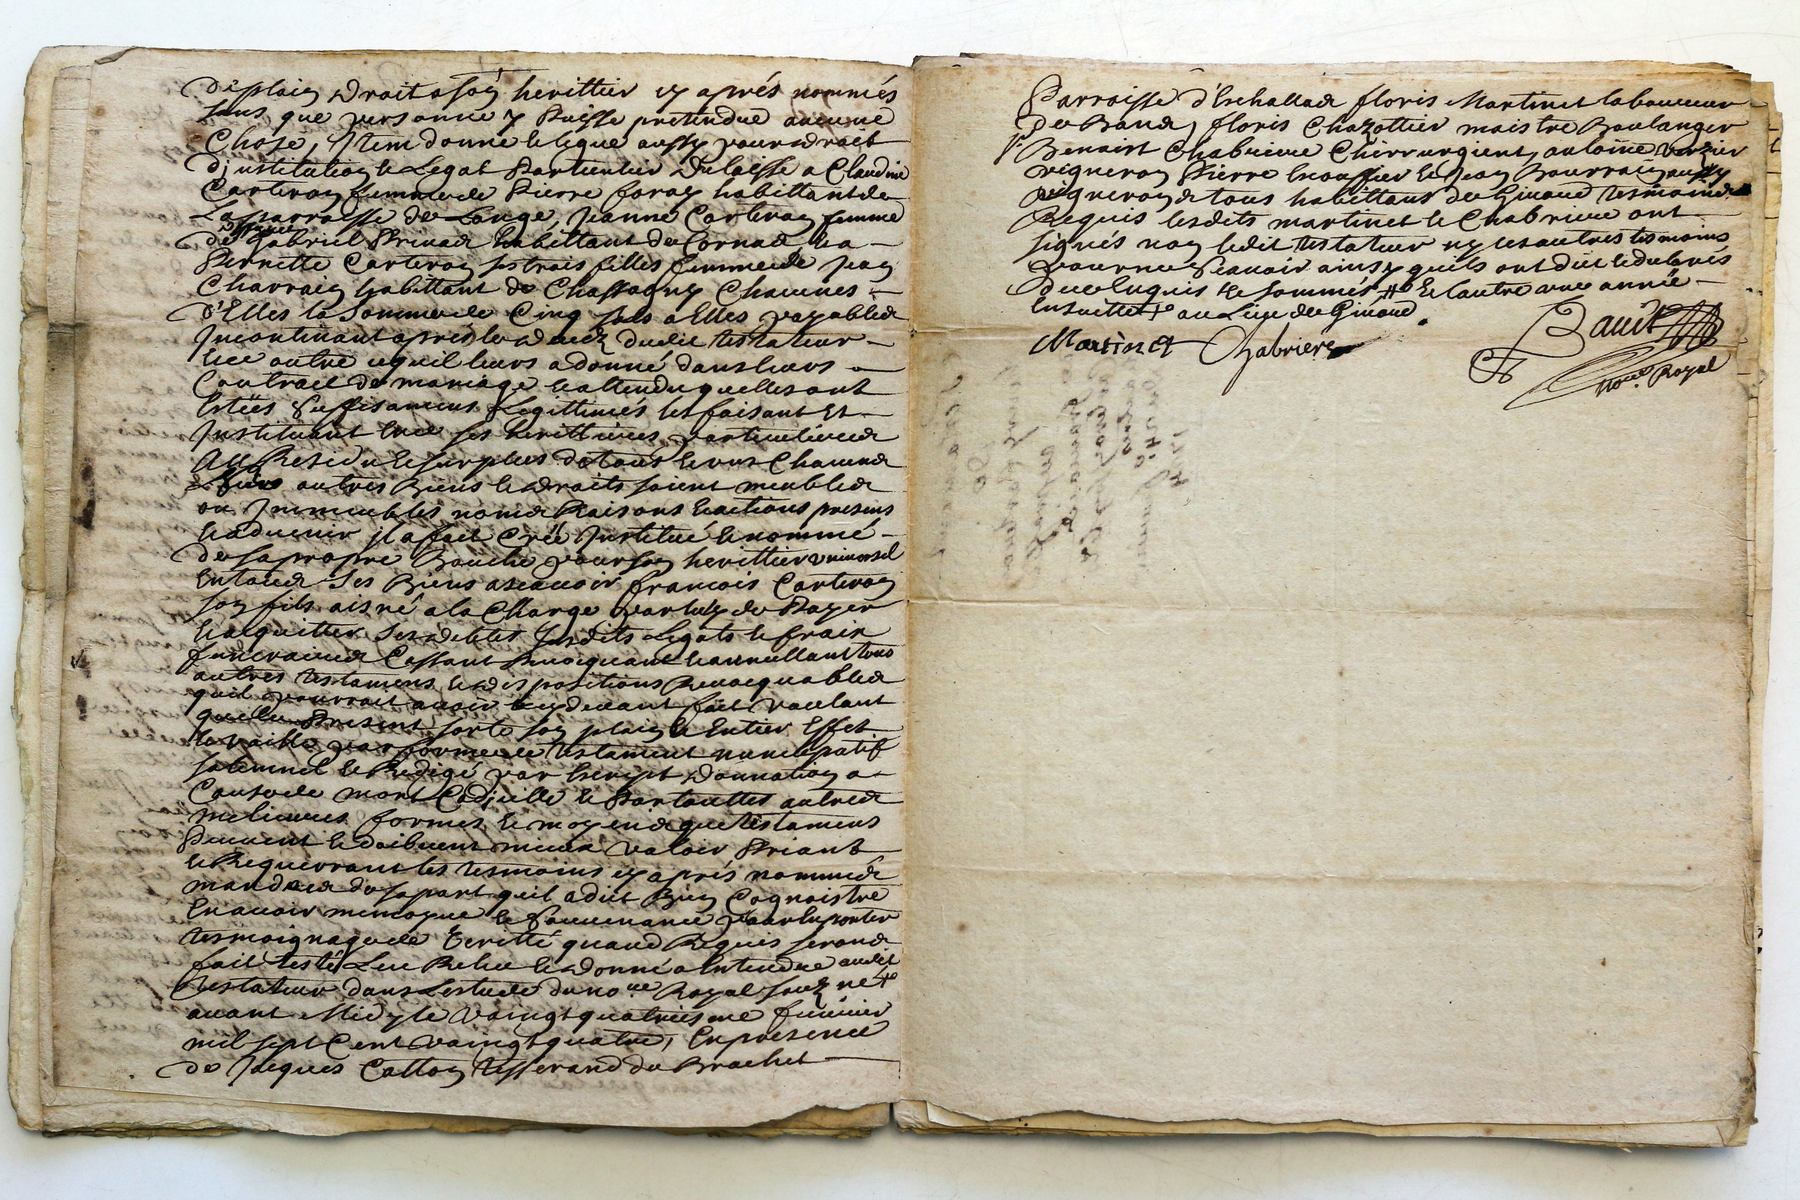 de plain droit a son herittier cy aprés nommés
sans que personne y puisse pretendre aucune
Chose, Item donne et legue aussy pour droit
d'institution et Legat particulier delaisse a Claudine
Carteron femme de Pierre foray habittant de
La parroisse de Longe, Jeanne Carteron femme
de Gabriel habittant de Cornas et a
Pernette Carteron ses trois filles femme de Jean
Charrain habittant de Chassagny Chacunes
d'Elles la somme de Cinq sols a Elles payables
Incontinant apres le decez dudit testateur
et ce outre ce qu'il leurs a donné dans leurs
Contract de mariage et attendu quelles ont
Estées suffisament Legittimés les faisant Et
Instituant Ence ses herittieres particulieres
Au Residu et surplus de tous et uns Chacuns
ses autres Biens et droits soient meubles
ou Immeubles noms Raisons et actions presens
et advenir il a fait Créé Institué et nommé
de sa propre Bouche pour son herittier universel
En tous ses Biens ascavoir francois Carteron
son fils aisné a la Charge par luy de Payer
et acquitter ses debtes susdits Legats et frais
funeraires Cassant Revoquant et annullant tous
autres testamens et dispositions Revocquables
quil pourroit avoir cy devant fait voulant
que le present sorte son plain et Entier Effet
et vaille par forme de testament nuncupatif
solemnel et Redigé par Escript donnation a
Cause de mort Codicille et par touttes autres
meilieures formes et moyens que testamens
Peuvent et doibvent mieux valoir Priant
et Requerant les tesmoins cy aprés nommés
mandés de sa part quil a dit Bien Cognoistre
En avoir memoyre et souvenance pour En porter
tesmoignage de veritté quand Requis seront
fait testé Leu Releu et donné a Entendre audit
testateur dans L'estude du no.re Royal souz.né
avant Midy le vaingt quatriesme fevrier
mil sept Cent vaingt quatre, En presence
de Jaques Catton tisserand du Brachet
Parroisse d'Eschallas floris Martinet laboureur
de Bans, floris Chazottier maistre Boulanger
Benoist Chabriere Chirrurgient, antoine Verzier
vigneron Pierre et Jean Bourrin aussy
vigneron tous habittans de Givord tesmoins
Requis lesdits martinet et Chabriere ont
signés non ledit testateur ny les autres tesmoins
pour ne scavoir ainsy quils ont dit et declarés
de ce Enquis et sommés # et l'autre ance année
Ensuitte au Lieu de Givord.
Martinet Chabriere Bauit
no.re Royal